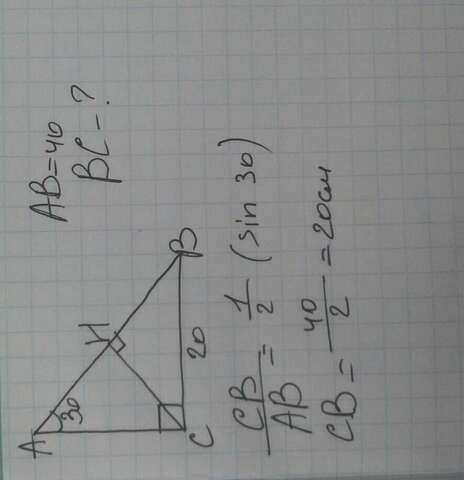 AB=40
BC-?
A
30
H
B
20
C
CB/AB = 1/2 (sin 30)
CB = 40/2 = 20см